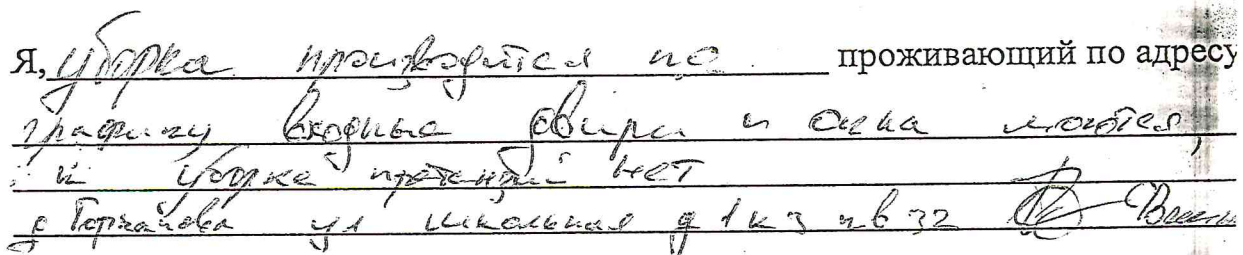 Я, уборка производится по проживающий по адресу
графику входные двири и окна моются,
к уборке претензий нет
ул школьная д 1 к 3 кв 32